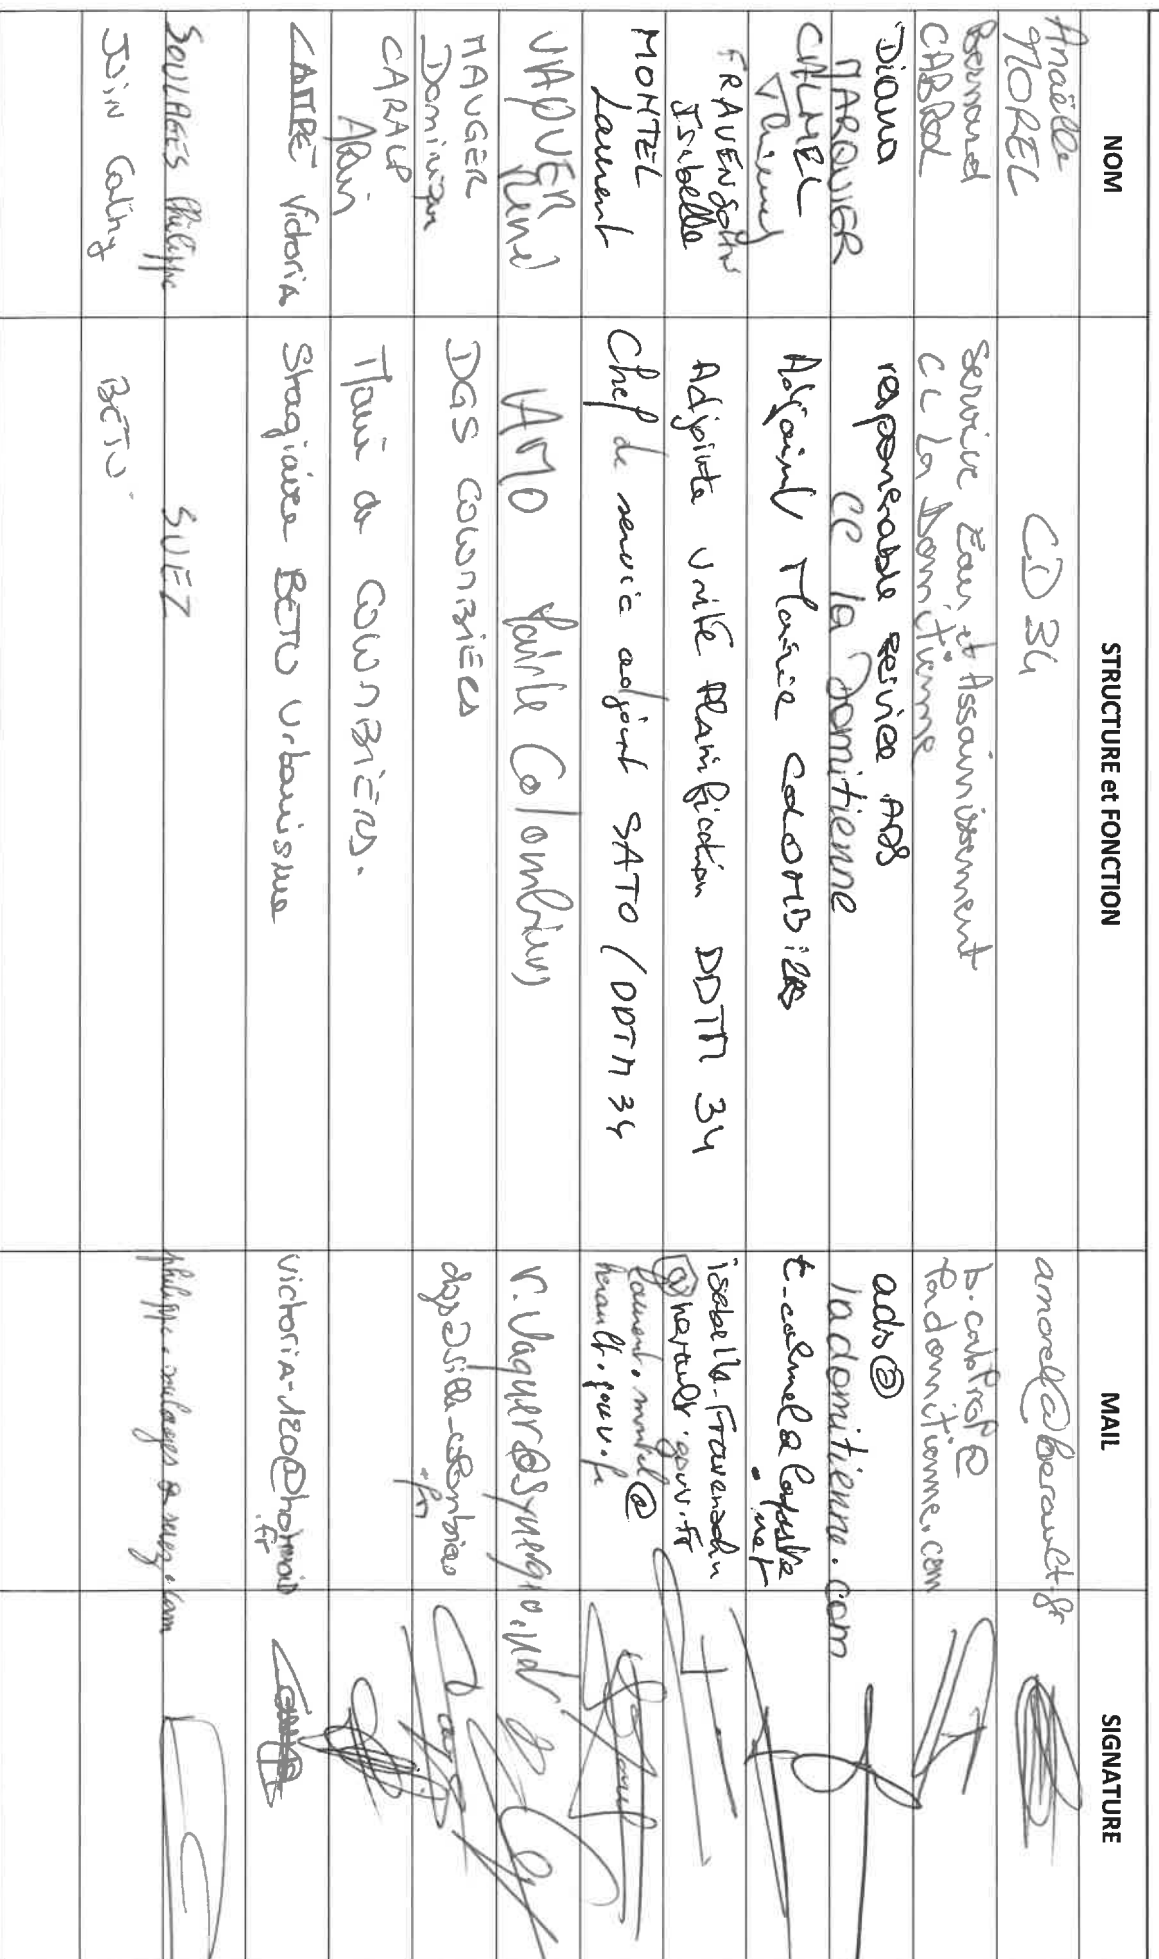 NOM
STRUCTURE et FONCTION
MAIL
SIGNATURE
Anaëlle
MOREL
CD 34
amorel@herault.fr
Bernard
CABROL
Service Eau et Assainissement
CC La Domitienne
b.cabrol@
ladomitienne.com
Diana
MARQUIER
responsable service ADS
CC la Domitienne
ads@
ladomitienne.com
CALMEL
Thierry
Adjoint Mairie Colombiers
t-calmel@laposte
.net
FRAVENSOHN
Isabelle
Adjointe Unité Planification DDTM 34
isabelle.
@herault.gouv.fr
MONTEL
Laurent
Chef de service adjoint SATO / DDTM 34
laurent.montel@
herault.gouv.fr
VAQUER
René
AMO Mairie Colombiers
MAUGER
Dominique
DGS COLOMBIERS
dgs@ville-colombiers
.fr
CARALP
Alain
Maire de COLOMBIERS.
Victoria
Stagiaire BETU Urbanisme
victoria-120@hotmail
.fr
SOULAGES Philippe
SUEZ
philippe.soulages@suez.com
JOIN Cathy
BETU